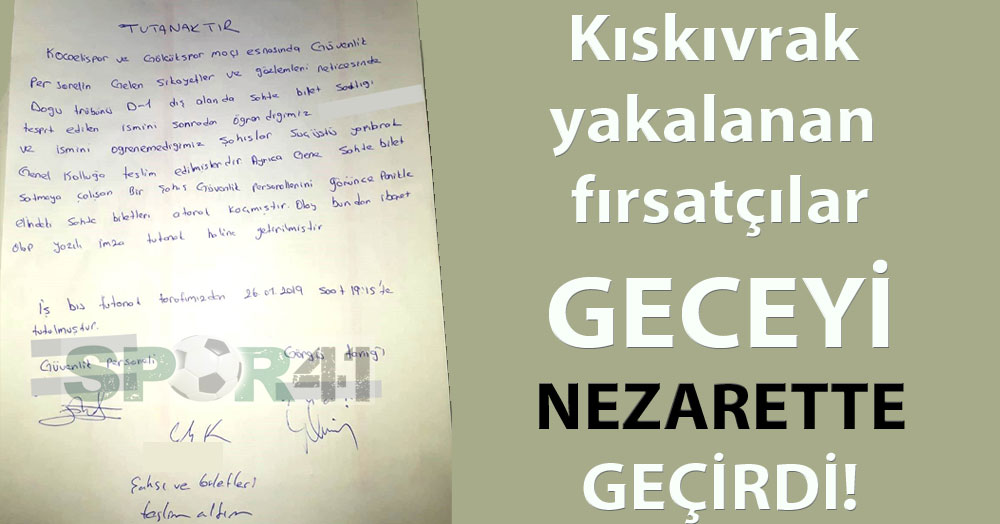 TUTANAKTIR
Kocaelispor ve Gölcükspor maçı esnasında Güvenlik
Personelin Gelen Şikayetler ve gözlemleri neticesinde
Doğu tribünü D-1 dış alanda sahte bilet sattığı
tespit edilen ismini sonradan öğrendiğimiz
ve ismini öğrenemediğimiz şahıslar Suçüstü yapılarak
Genel Kolluğa teslim edilmişlerdir. Ayrıca Gene Sahte bilet
satmaya çalışan Bir Şahıs Güvenlik Personellerini görünce Panikle
elindeki sahte biletleri atarak kaçmıştır. Olay bundan ibaret
olup yazılı imza tutanak haline getirilmiştir
İş bu tutanak tarafımızdan 26.01.2019 saat 19:15'te
tutulmuştur.
Güvenlik Personeli
Görgü tanığı
SPOR41
Şahsı ve biletleri
teslim aldım
Kıskıvrak
yakalanan
fırsatçılar
GECEYİ
NEZARETTE
GEÇİRDİ!